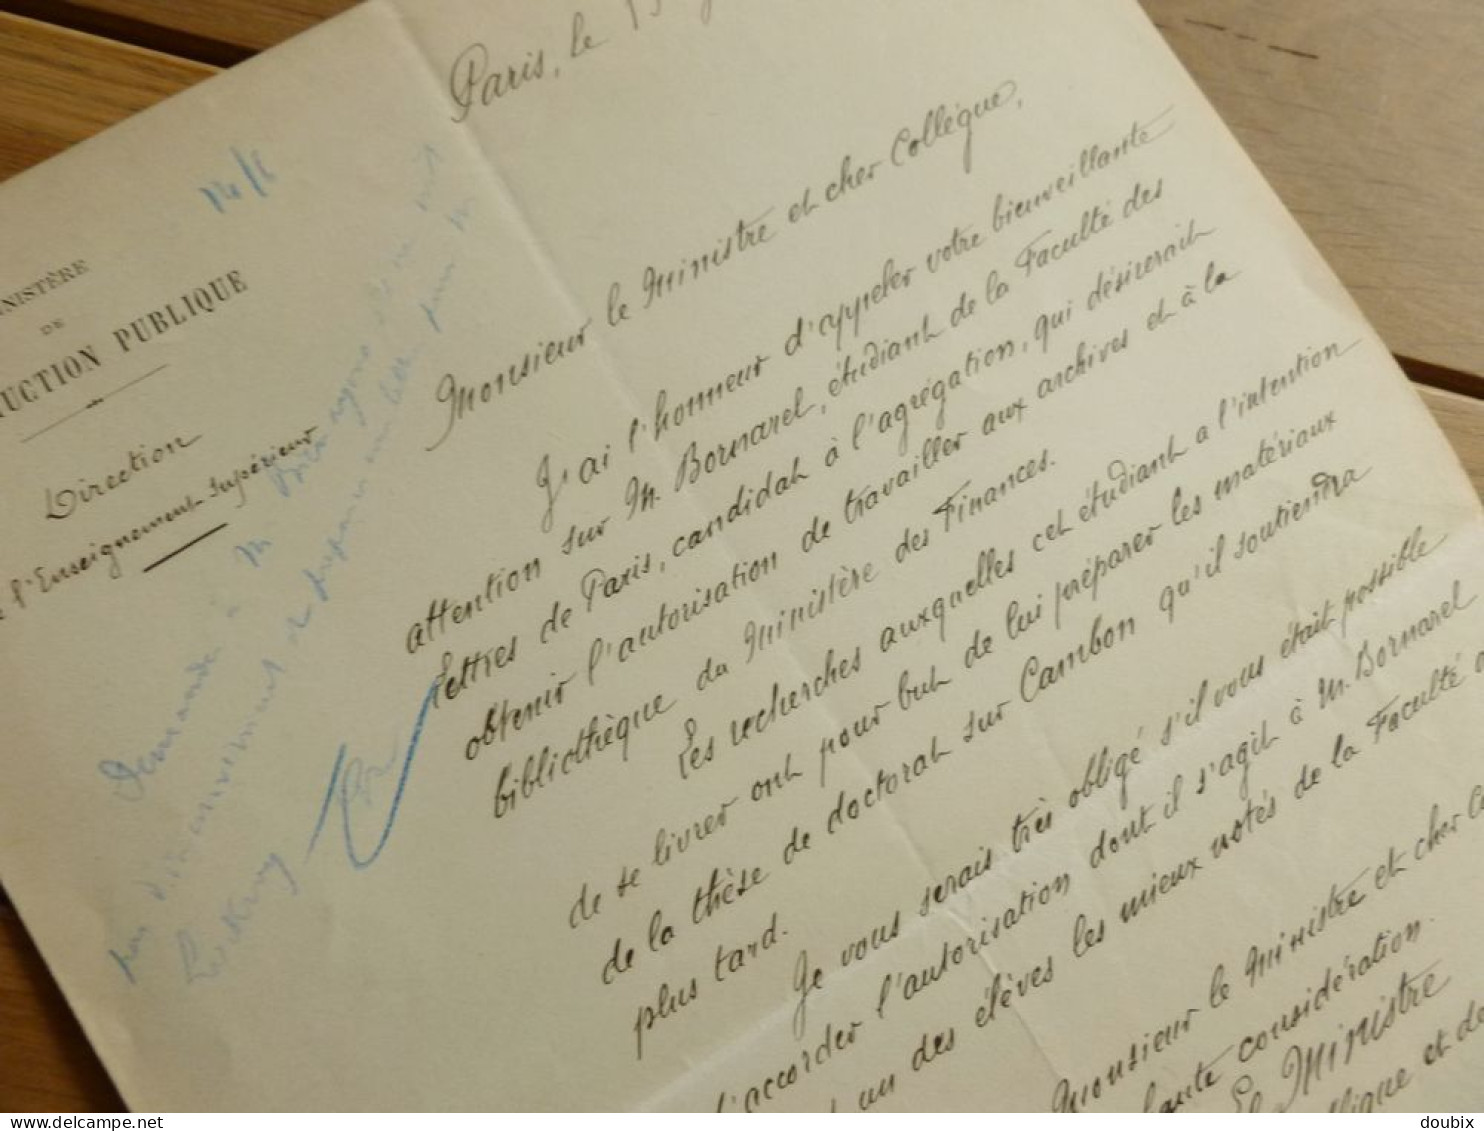 NISTÈRE
DE
UCTION PUBLIQUE
Direction
l'Enseignement Supérieur
14/6
Demande à M
Lockroy
Paris, le 13
Monsieur le Ministre et cher Collègue,
J'ai l'honneur d'appeler votre bienveillante
attention sur M. Bornarel, étudiant de la Faculté des
lettres de Paris, candidat à l'agrégation, qui désirerait
obtenir l'autorisation de travailler aux archives et à la
bibliothèque du Ministère des Finances.
Les recherches auxquelles cet étudiant a l'intention
de se livrer ont pour but de lui préparer les matériaux
de la thèse de doctorat sur Cambon qu'il soutiendra
plus tard.
Je vous serais très obligé s'il vous était possible
d'accorder l'autorisation dont il s'agit à M. Bornarel
un des élèves les mieux notés de la Faculté
Monsieur le Ministre et cher
considération.
Le Ministre
et de
https://www.delcampe.net
doubix